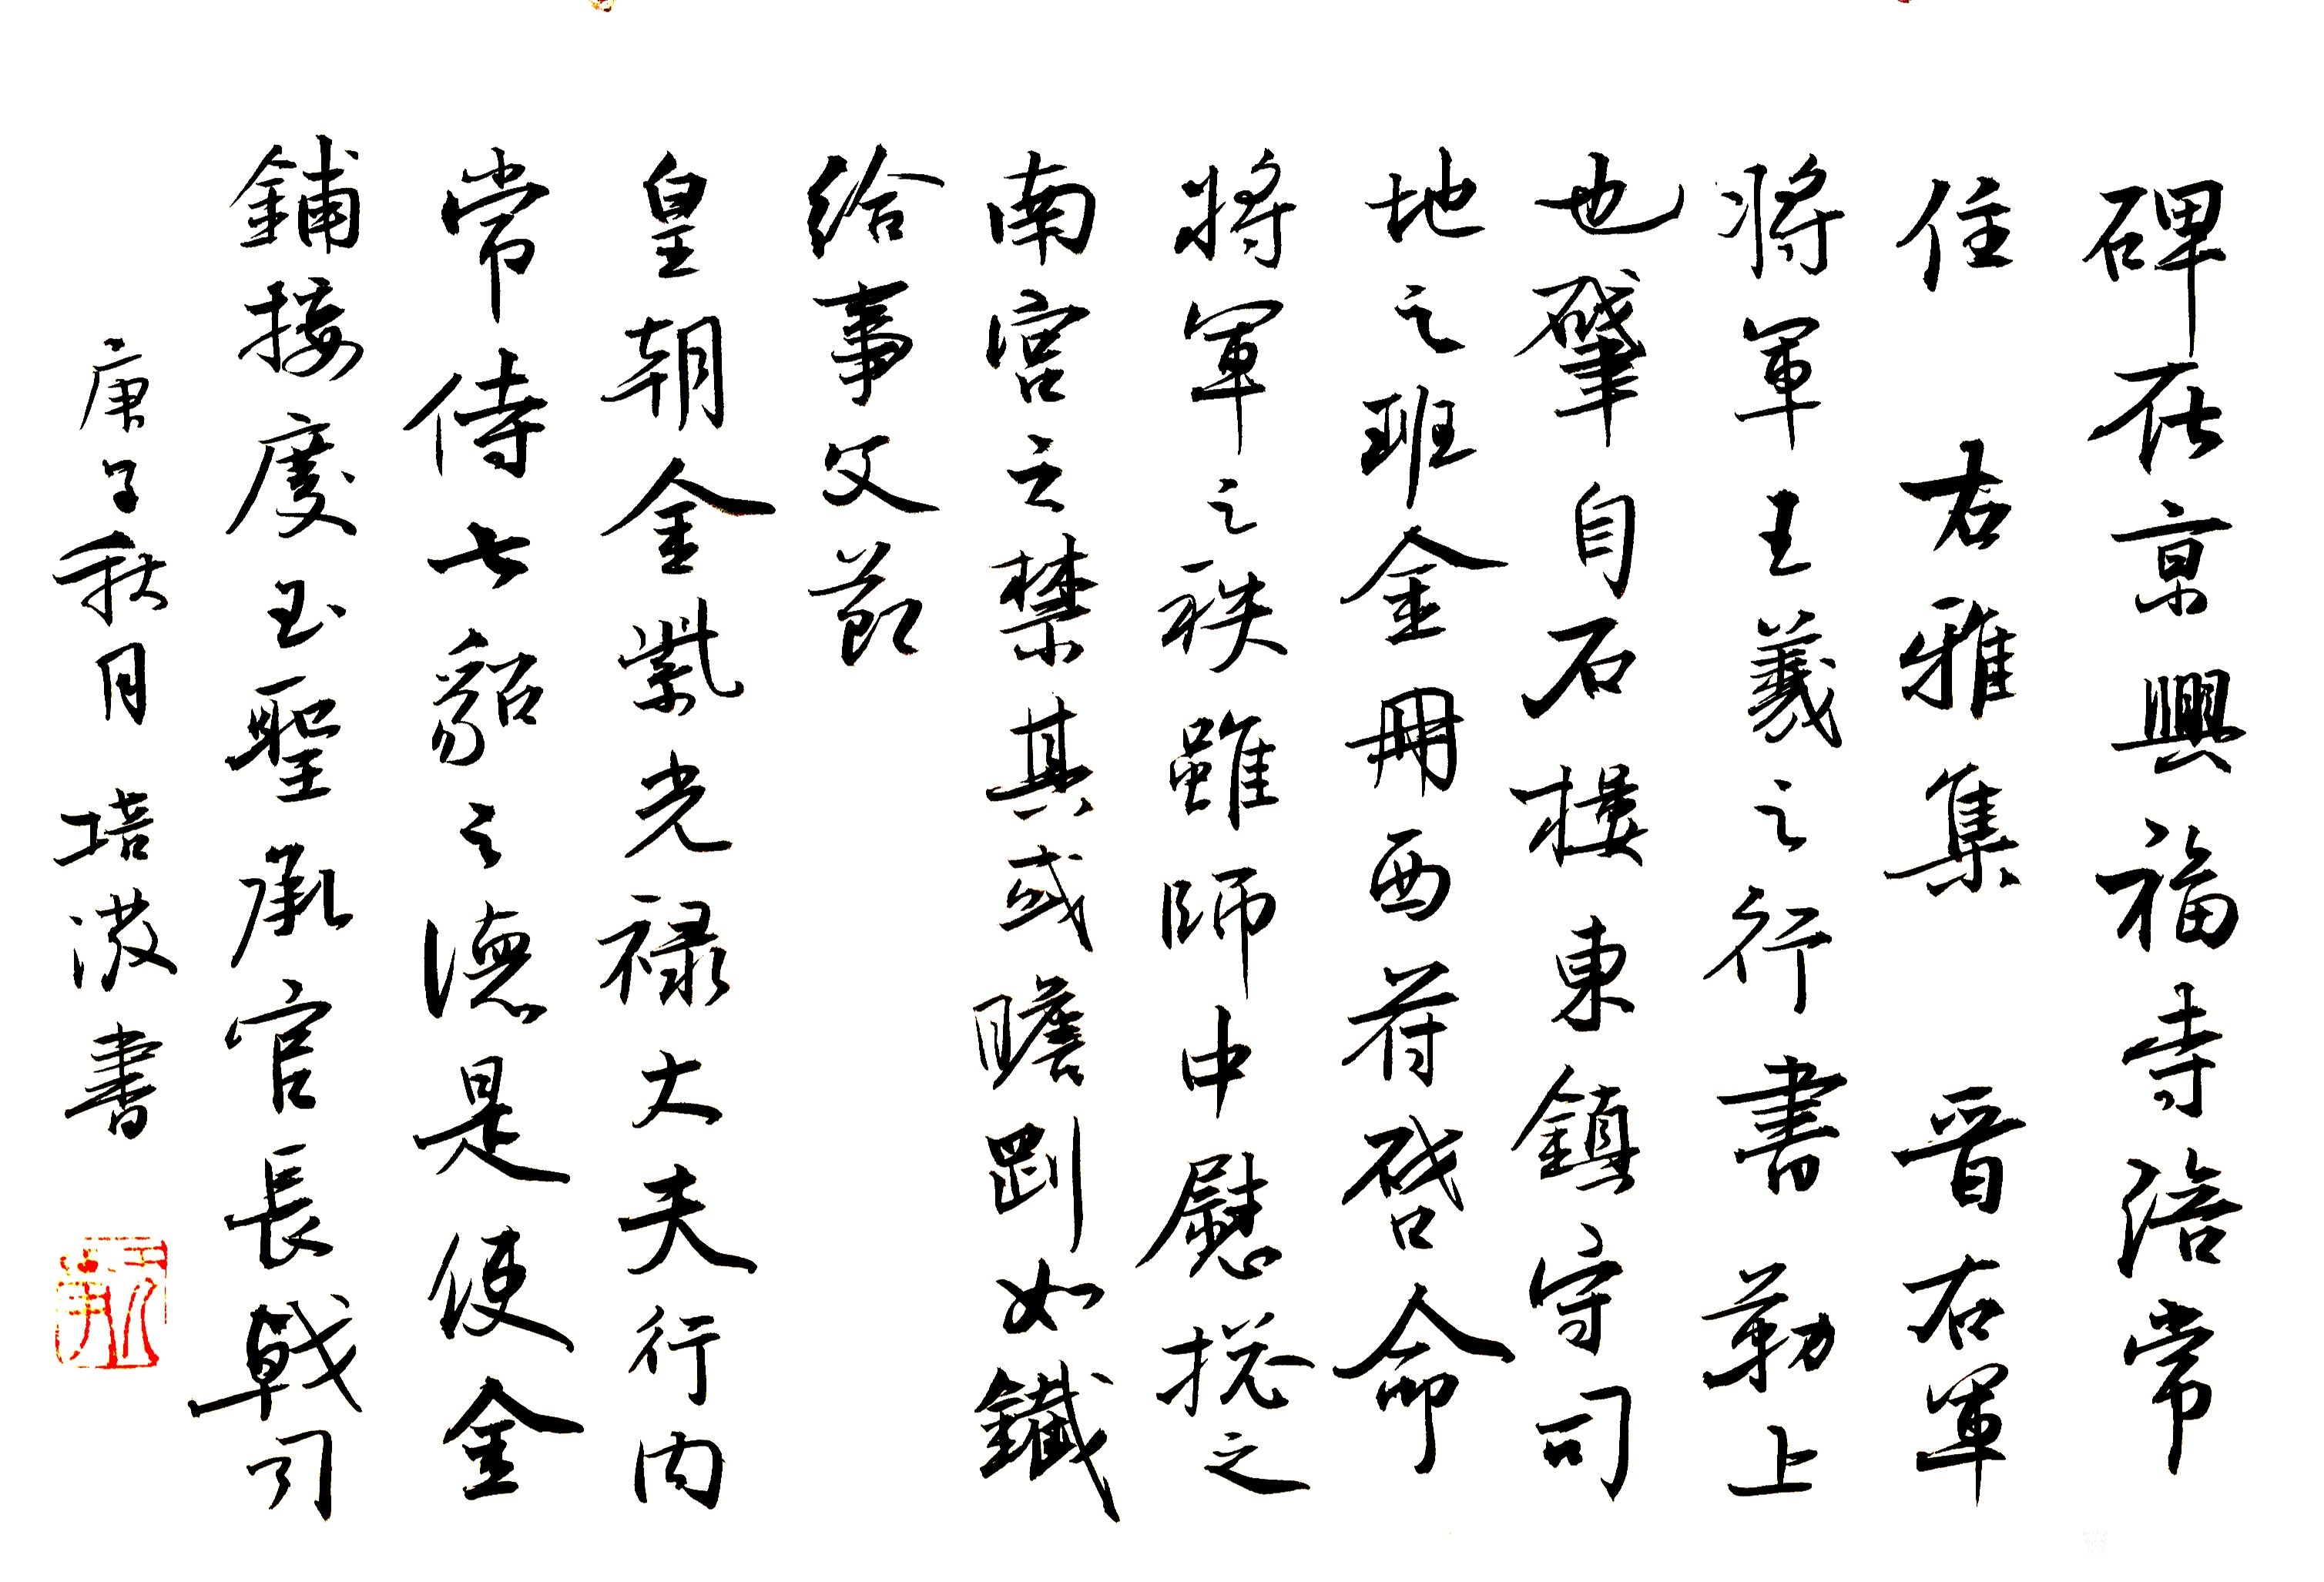 碑在京興福寺涪常
住 右雅集 晉右軍
將軍王羲之行書勒上
也肇自石樓東鎮守司
地之班金冊西符啓命
將軍之秩雖師中慰撫之
南宮之禁其或瞻剛如鐵
給事文節
皇朝金紫光祿大夫行內
常侍七貂之德是使金
鋪接慶玉璽承官長戟司
庚子秋月 培波書